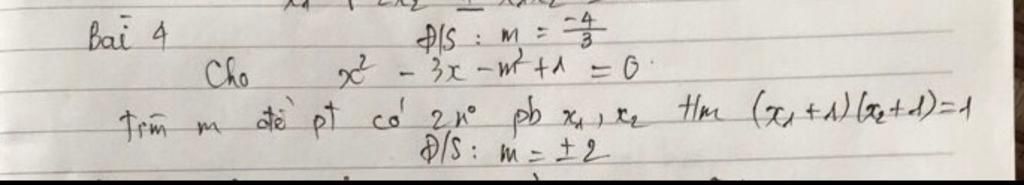 Bài 4
Đ/S : m = -4/3
Cho x² - 3x - m² + 1 = 0.
Tìm m để pt có 2 n° pb x₁, x₂ t/m (x₁+1)(x₂+1)=1
Đ/S : m = ±2